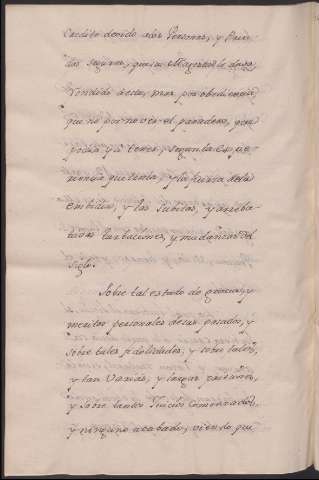 Credito devido a los Personas, y Prin-
das seguras, que su Magestad le dava,
Rendido a esta, mas por obediencia,
que no por no ver el paradero, que
podia ya tener, segun la espe-
riencia que tenia, y la fuerza de la
embidia, y las subitas, y arreba-
tadas turbaciones, y mudanzas del
siglo.
Sobre tal estado de gracias, y
meritos personales de sus pasados, y
sobre tales fidelidades, y sobre tantas,
y tan varias, y largas prisiones,
y sobre tantos Juicios comenzados,
y ninguno acabado, viendo que